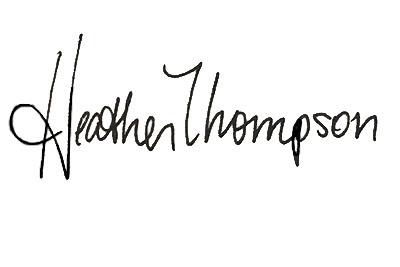 Heather Thompson